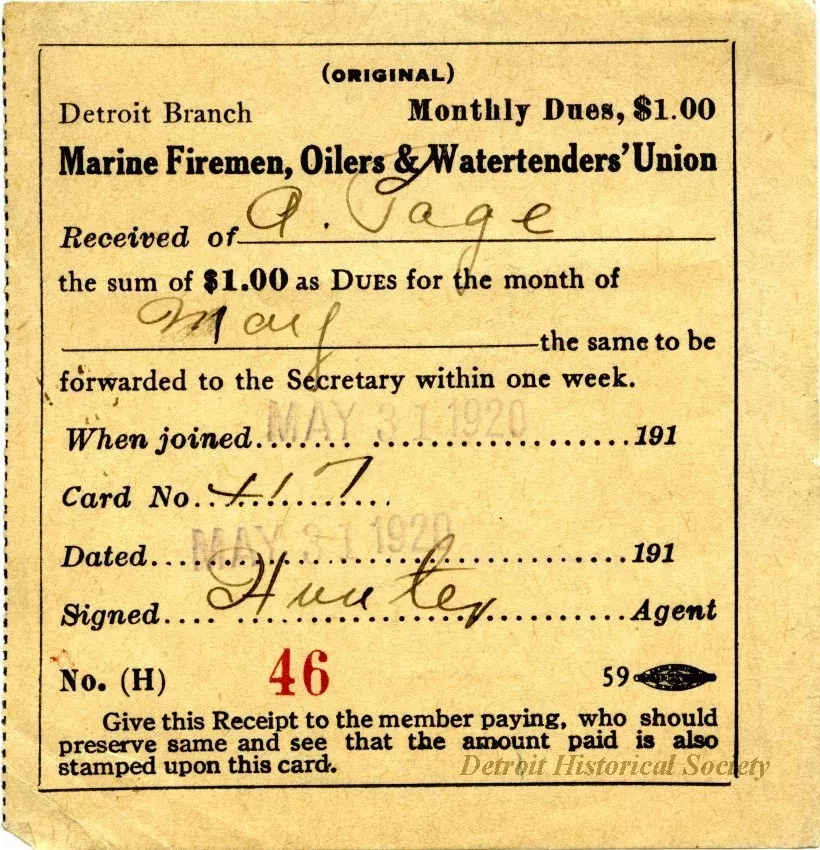 (ORIGINAL)
Detroit Branch Monthly Dues, $1.00
Marine Firemen, Oilers & Watertenders' Union
Received of A. Page
the sum of $1.00 as DUES for the month of
May the same to be
forwarded to the Secretary within one week.
MAY 31 1920
When joined....... ..................191
Card No. 417
MAY 31 1920
Dated..............................191
Signed.... Hunter Agent
No. (H) 46 59
Give this Receipt to the member paying, who should
preserve same and see that the amount paid is also
stamped upon this card.
Detroit Historical Society